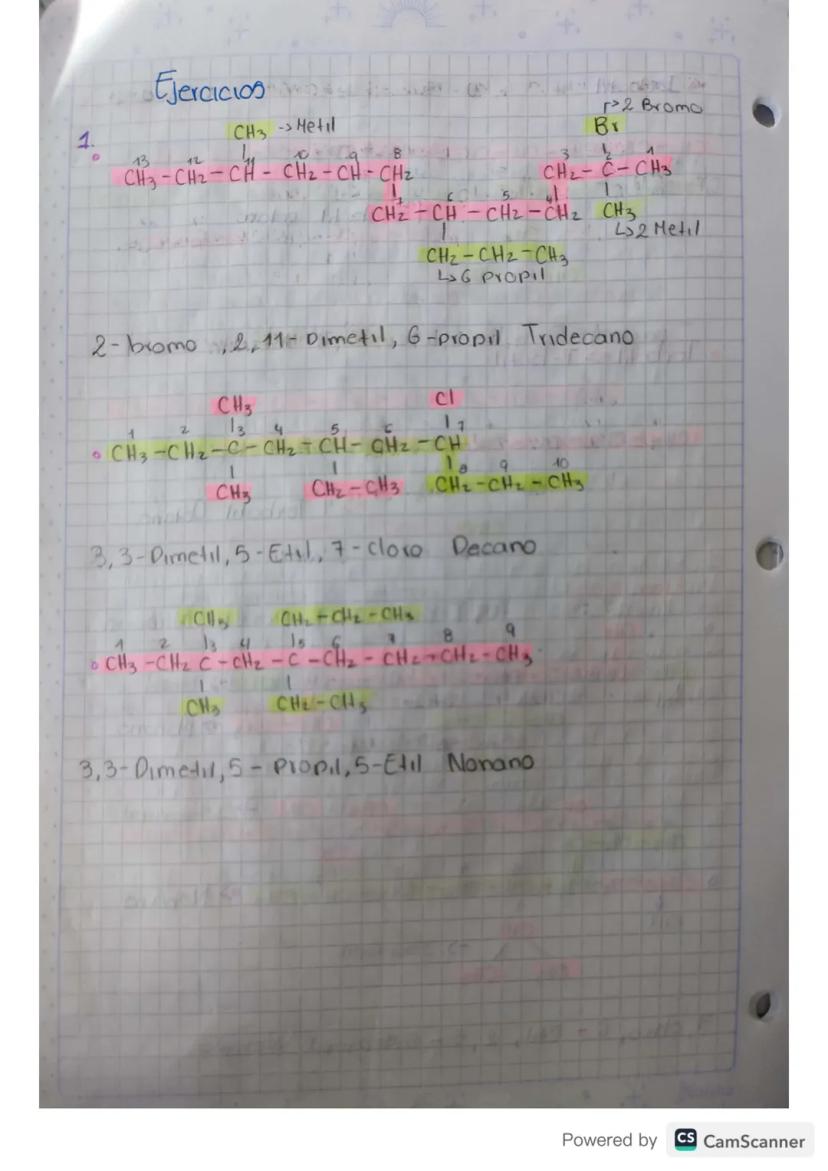 Ejercicios
↱2 Bromo
CH3 ->Metil
Br
1.
13 12 11 10 9 8 3 2 1
CH3 - CH2 - CH - CH2 - CH - CH2 CH2 - C - CH3
7 6 5 4
CH2 - CH - CH2 - CH2 CH3
↳2 Metil
CH2 - CH2 - CH3
↳6 propil
2-bromo ,2,11-Dimetil, 6-propil Tridecano
CH3 Cl
1 2 3 4 5 6 7
CH3 -CH2 -C- CH2 - CH- CH2 -CH
8 9 10
CH3 CH2-CH3 CH2-CH2-CH3
3,3-Dimetil, 5-Etil, 7-cloro Decano
CH3 CH2-CH2-CH3
1 2 3 4 5 6 7 8 9
CH3 -CH2 C -CH2 -C -CH2 - CH2-CH2-CH3
CH3 CH2-CH3
3,3-Dimetil, 5- Propil, 5-Etil Nonano
Powered by CS CamScanner